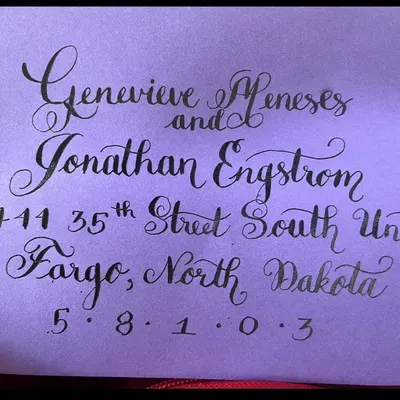 Genevieve Meneses
and
Jonathan Engstrom
35th Street South
Fargo, North Dakota
5 · 8 · 1 · 0 · 3